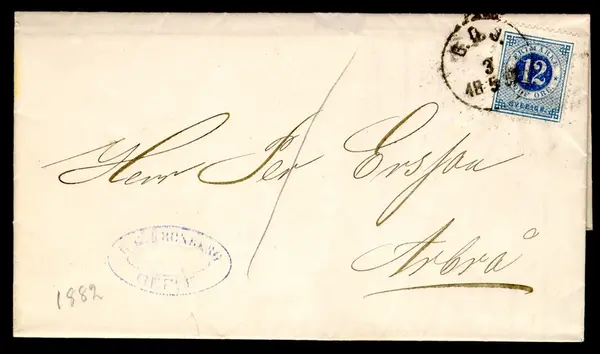 G. D. J.
3
18 5
FRIMÄRKE
12
TOLF ÖRE
SVERIGE
Herr Per Ersson
Arbrå
GEFLE
1882